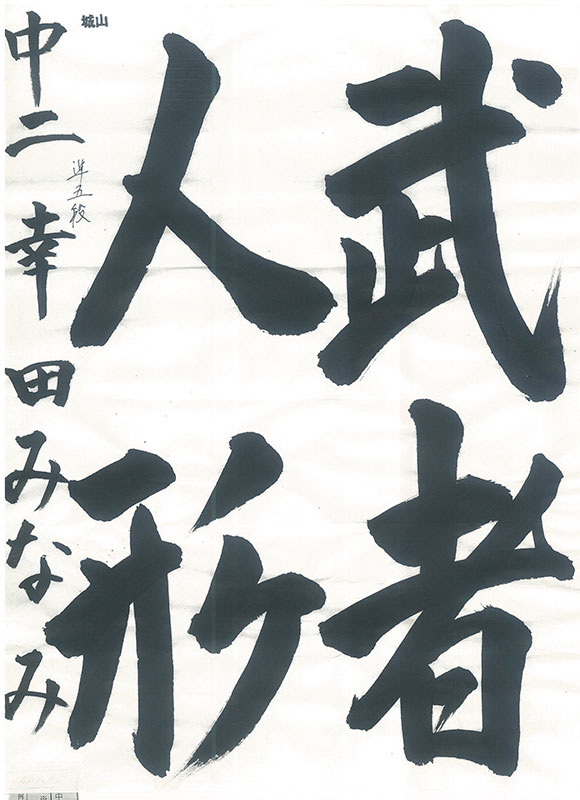 武者
人形
城山
中二 幸田みなみ
準五段